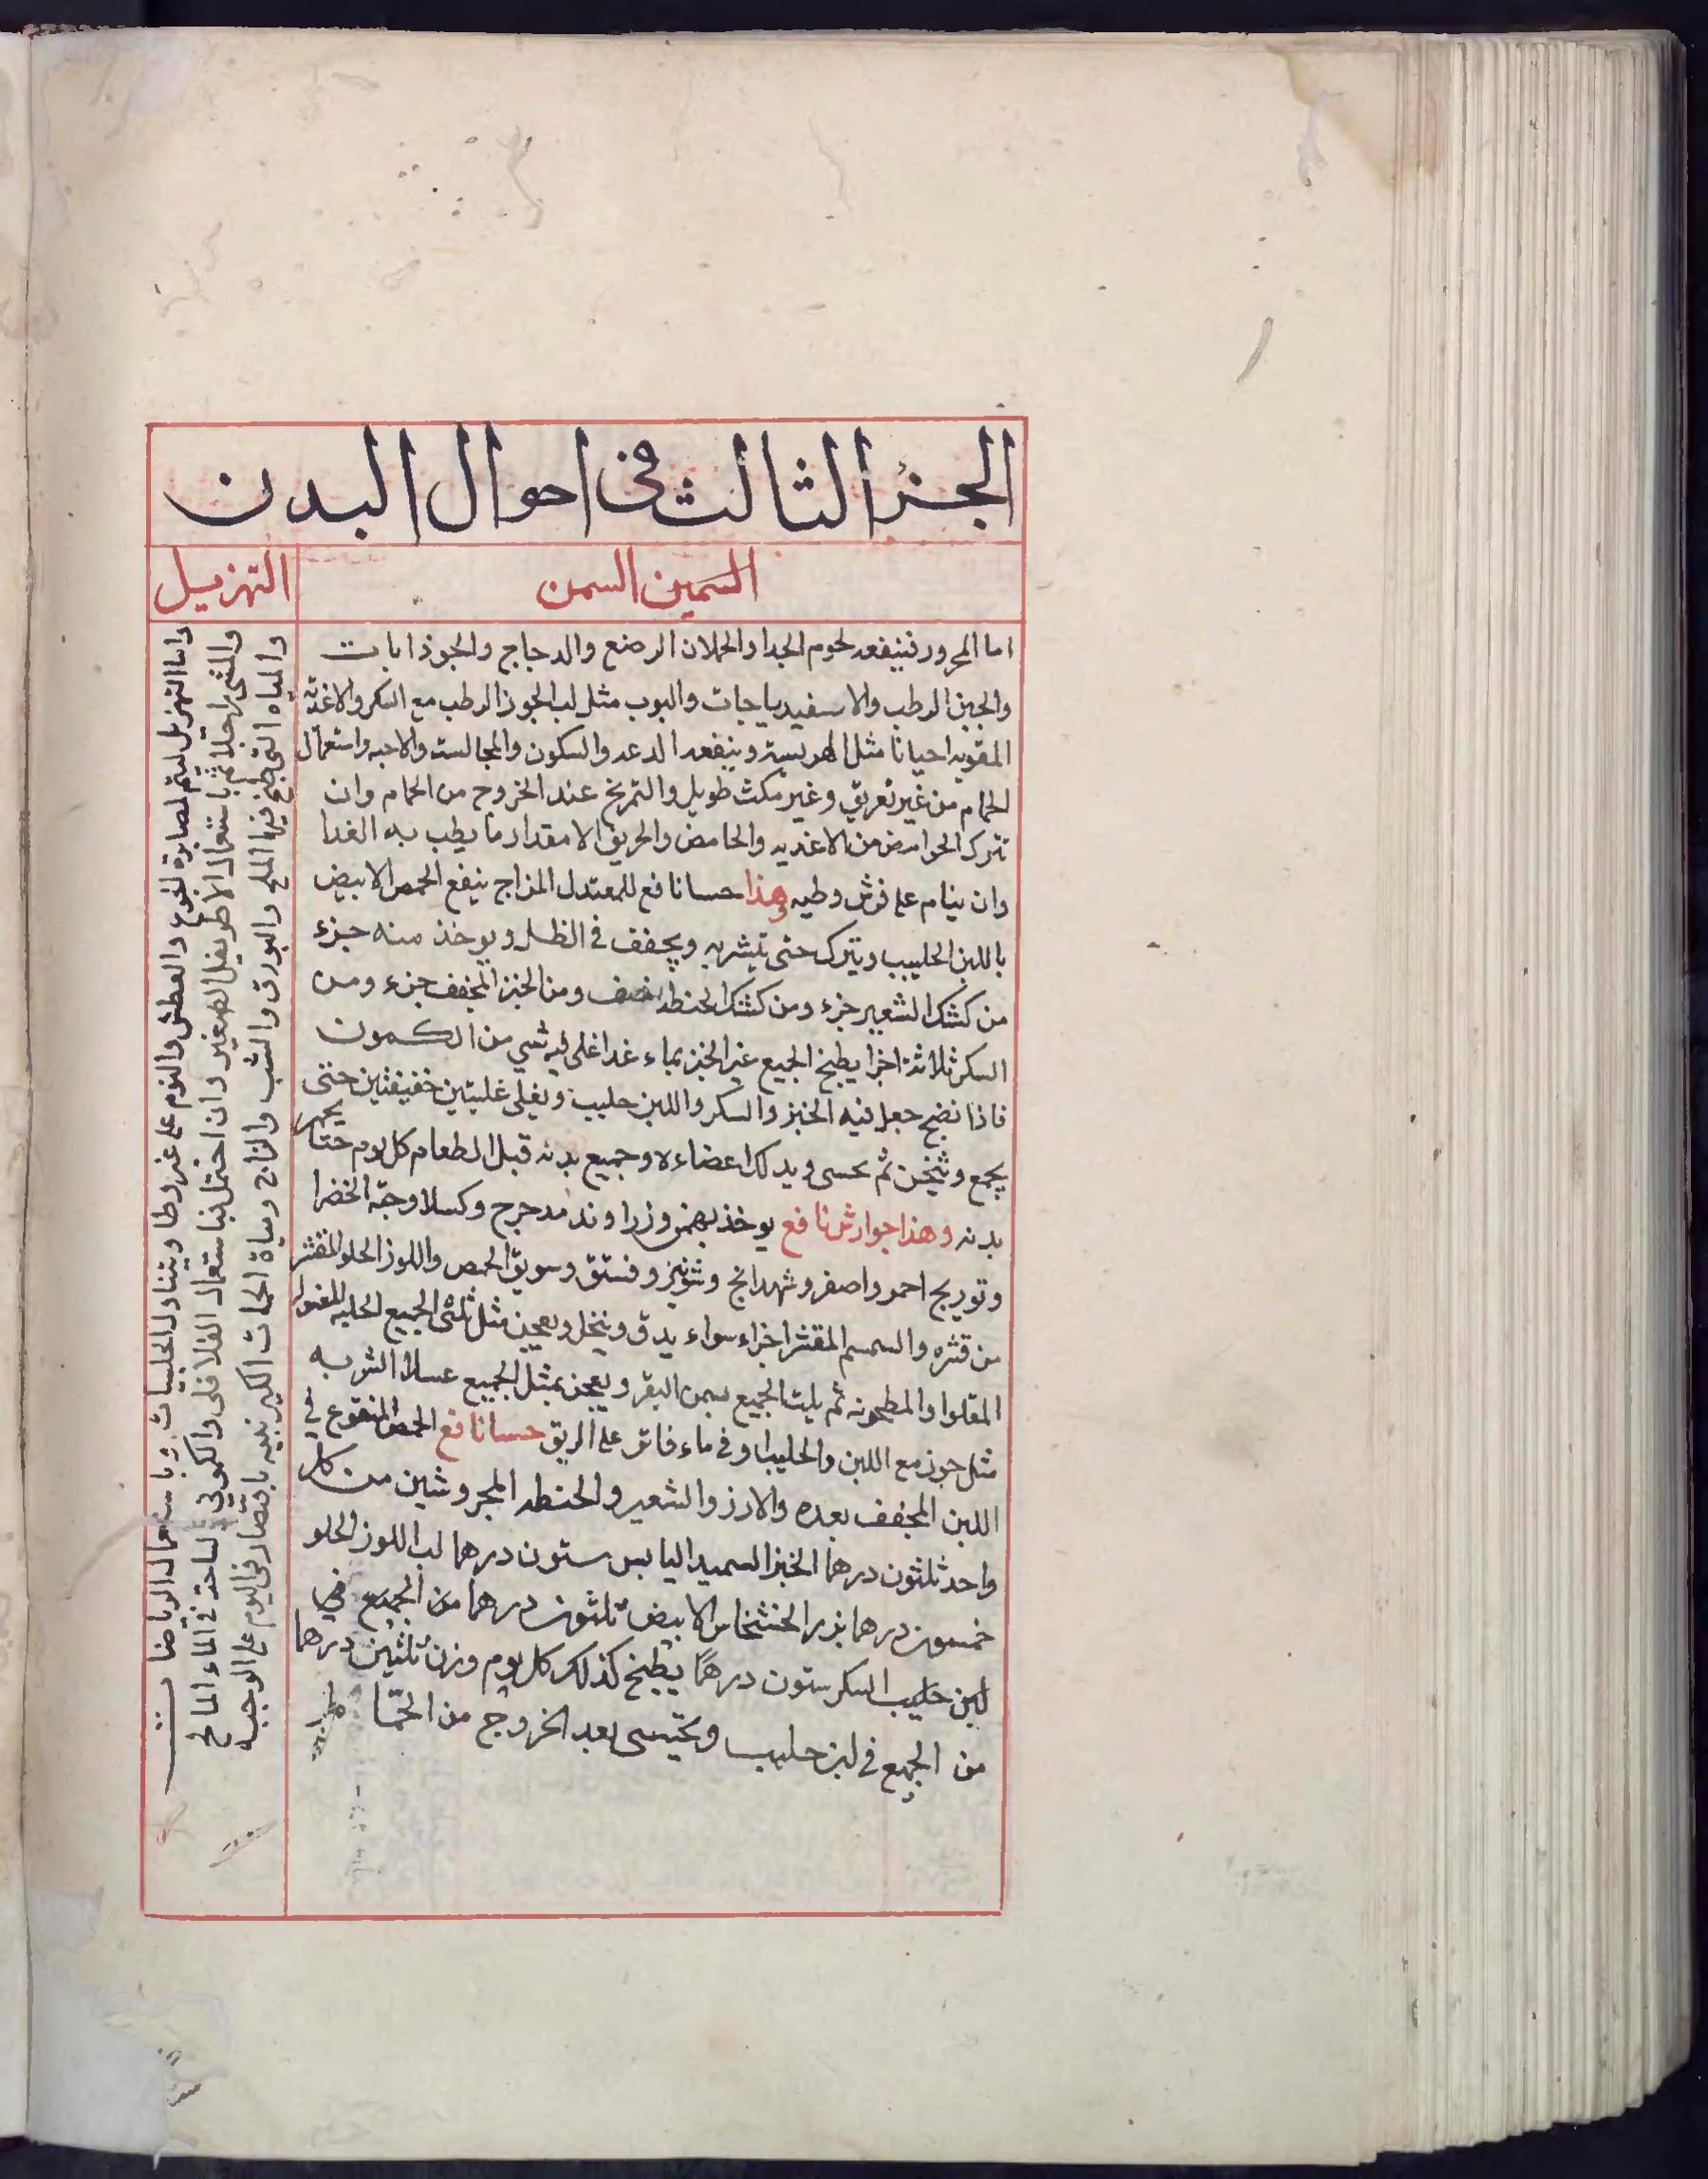 الجزء الثالث في احوال البدن
السمين السمن
التهزيل
اما المحرور فينفعه لحوم الجدا والحملان الرضع والدجاج والجوذابات
والجبن الرطب والاسفيدباجات والبوب مثل لب الجوز الرطب مع السكر والاغذية
المقويه احيانا مثل الهريسة وينفعه الدعه والسكون والمجالسة والاحبه واستعمال
الحمام من غير تعريق وغير مكث طويل والتمريخ عند الخروج من الحمام وان
تترك الحوامض من الاغذيه والحامض والحريق الا مقدار ما يطب به الغدا
وان ينام على فرش وطيه وهذا حسا نافع للمعتدل المزاج ينفع الحمص الابيض
باللبن الحليب ويترك حتى يتشربه ويجفف في الظل ويوخذ منه جزء
من كشك الشعير جزء ومن كشك الحنطه نصف ومن الخبز المجفف جزء ومن
السكر ثلاثة اجزا يطبخ الجميع غير الخبز بماء غدا غلي فيه شي من الكمون
فاذا نضج جعل فيه الخبز والسكر واللبن حليب ويغلى غليتين خفيفتين حتى
يجمع ويثخن ثم يحسى ويدلك اعضاءه وجميع بدنه قبل الطعام كل يوم حتا يحمر
بدنه وهذا جوارش نافع يوخذ بهمن وزراوند مدحرج وكسلا وحبة الخضرا
وتوريج احمر واصفر وشهدانج وشونيز وفستق وسويق الحمص واللوز الحلو المقشر
من قشره والسمسم المقشر اجزاء سواء يدق وينخل ويعجن مثل ثلثي الجميع الحلبه المغسوله
المقلوا والمطحونه ثم يلت الجميع بسمن البقر ويعجن بمثل الجميع عسلا الشربه
مثل جوز مع اللبن والحليب او في ماء فاتر على الريق حسا نافع الحمص المنقوع في
اللبن المجفف بعده والارز والشعير والحنطه المجروشين من كل
واحد ثلثون درهما الخبز السميد اليابس ستون درهما لب اللوز الحلو
خمسون درهما بزر الخشخاش الابيض ثلثون درهما من الجميع في
لبن حليب السكر ستون درهمًا يطبخ كذلك كل يوم وزن ثلثين درهما
من الجميع في لبن حليب ويحتسى بعد الخروج من الحمّا
واما التهزيل ليتم لمصابرة الجوع والعطش والنوم على غير وطا ويتناول الحلبيات وباستعمال الرياضات
والمشي راجلا ثم باستعمال الاطريفل الصغير وان احتمل فباستعمال الفلافلي والكموني الساحة في الماء المالح
والمياه التي طبخ فيها الملح والبورق والشب والزاج ومياة الحمات الكبريتيه باقتصار في اليوم على الوجبه